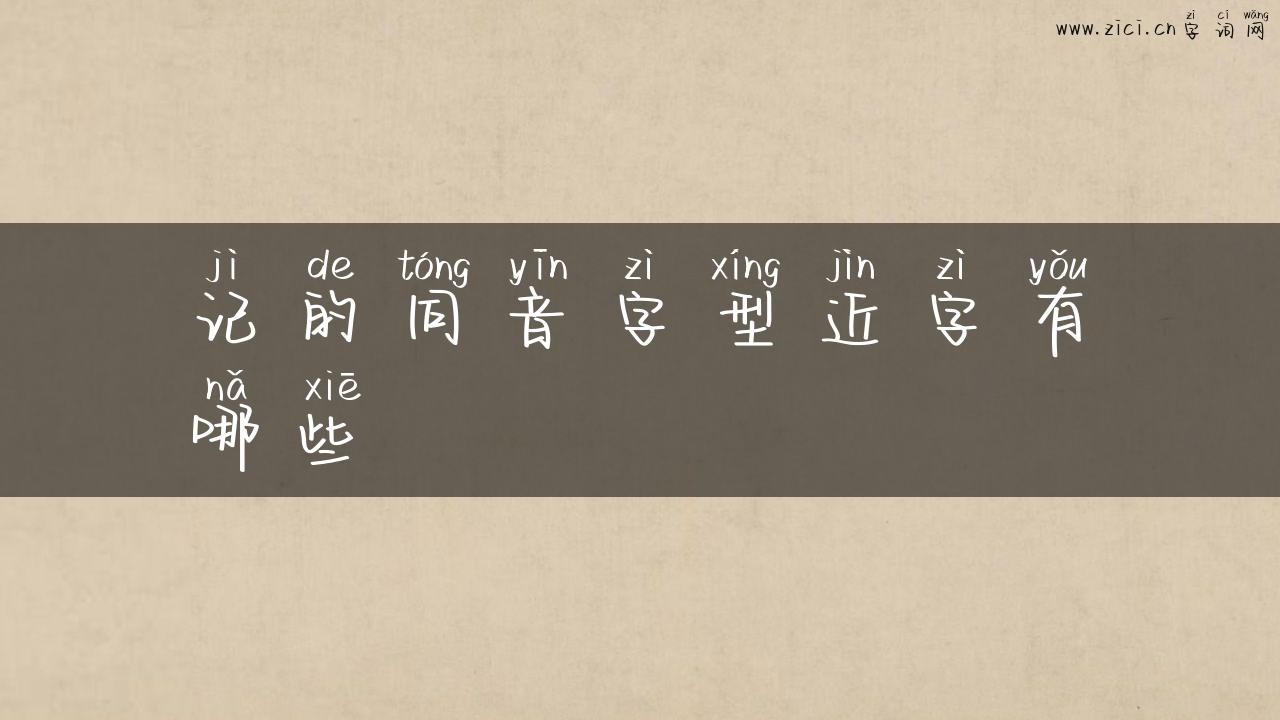 zì cí wǎng
www.zici.cn 字词网
jì de tóng yīn zì xíng jìn zì yǒu
记的同音字型近字有
nǎ xiē
哪些